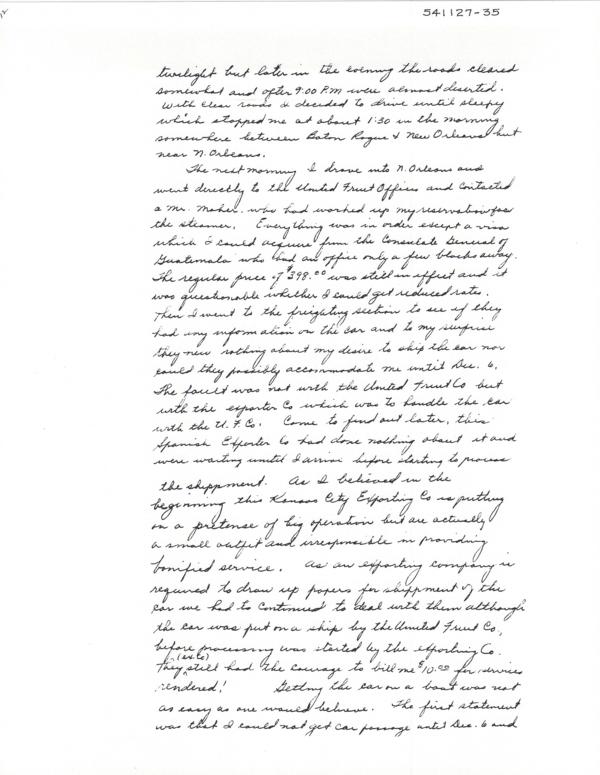 541127-35
twilight but later in the evening the roads cleared
somewhat and after 9:00 P.M were almost deserted.
With clear roads I decided to drive until sleepy
which stopped me at about 1:30 in the morning
somewhere between Baton Rogue & New Orleans but
near N. Orleans.
The next morning I drove into N. Orleans and
went directly to the United Fruit Offices and contacted
a Mr. Maher, who had worked up my reservation for
the steamer. Everything was in order except a visa
which I could acquire from the Consulate General of
Guatemala who had an office only a few blocks away.
The regular price of $398.00 was still in effect and it
was questionable whether I could get reduced rates.
Then I went to the freighting section to see if they
had any information on the car and to my surprise
they new nothing about my desire to ship the car nor
could they possibly accommodate me until Dec. 6.
The fault was not with the United Fruit Co but
with the exporter Co which was to handle the car
with the U.F.Co. Come to find out later, this
Spanish Exporter Co had done nothing about it and
were waiting until I arrive before starting to process
the shippment. As I believed in the
beginning this Kansas City Exporting Co is putting
on a pretense of big operation but are actually
a small outfit and irresponsible in providing
bonified service. As an exporting company is
required to draw up papers for shippment of the
car we had to continued to deal with them although
the car was put on a ship by the United Fruit Co,
before processing was started by the exporting Co.
(ex.Co)
They still had the courage to bill me $10.00 for services
rendered! Getting the car on a boat was not
as easy as one would believe. The first statement
was that I could not get car passage until Dec. 6 and